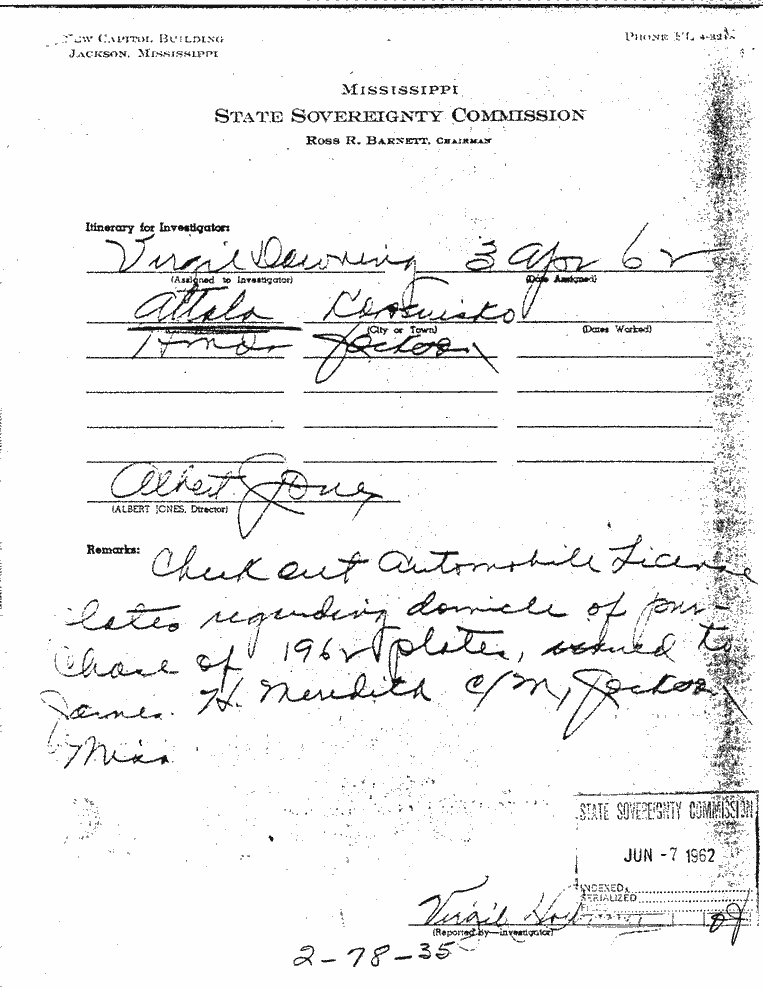 NEW CAPITOL BUILDING
JACKSON, MISSISSIPPI
PHONE FL
MISSISSIPPI
STATE SOVEREIGNTY COMMISSION
ROSS R. BARNETT, CHAIRMAN
Itinerary for Investigator:
Virgil Downing 3 Apr 62
(Assigned to Investigator) (Date Assigned)
Attala Kosciusko
(City or Town) (Dates Worked)
Hinds Jackson
Albert Jones
(ALBERT JONES, Director)
Remarks: Check out Automobile License
lates regarding domicle of pur-
chase of 1962 plates, issued to
James H. Meredith c/m, Jackson
Miss
STATE SOVEREIGNTY COMMISSION
JUN -7 1962
INDEXED
SERIALIZED
Virgil Downing
(Reported by—Investigator)
2-78-35